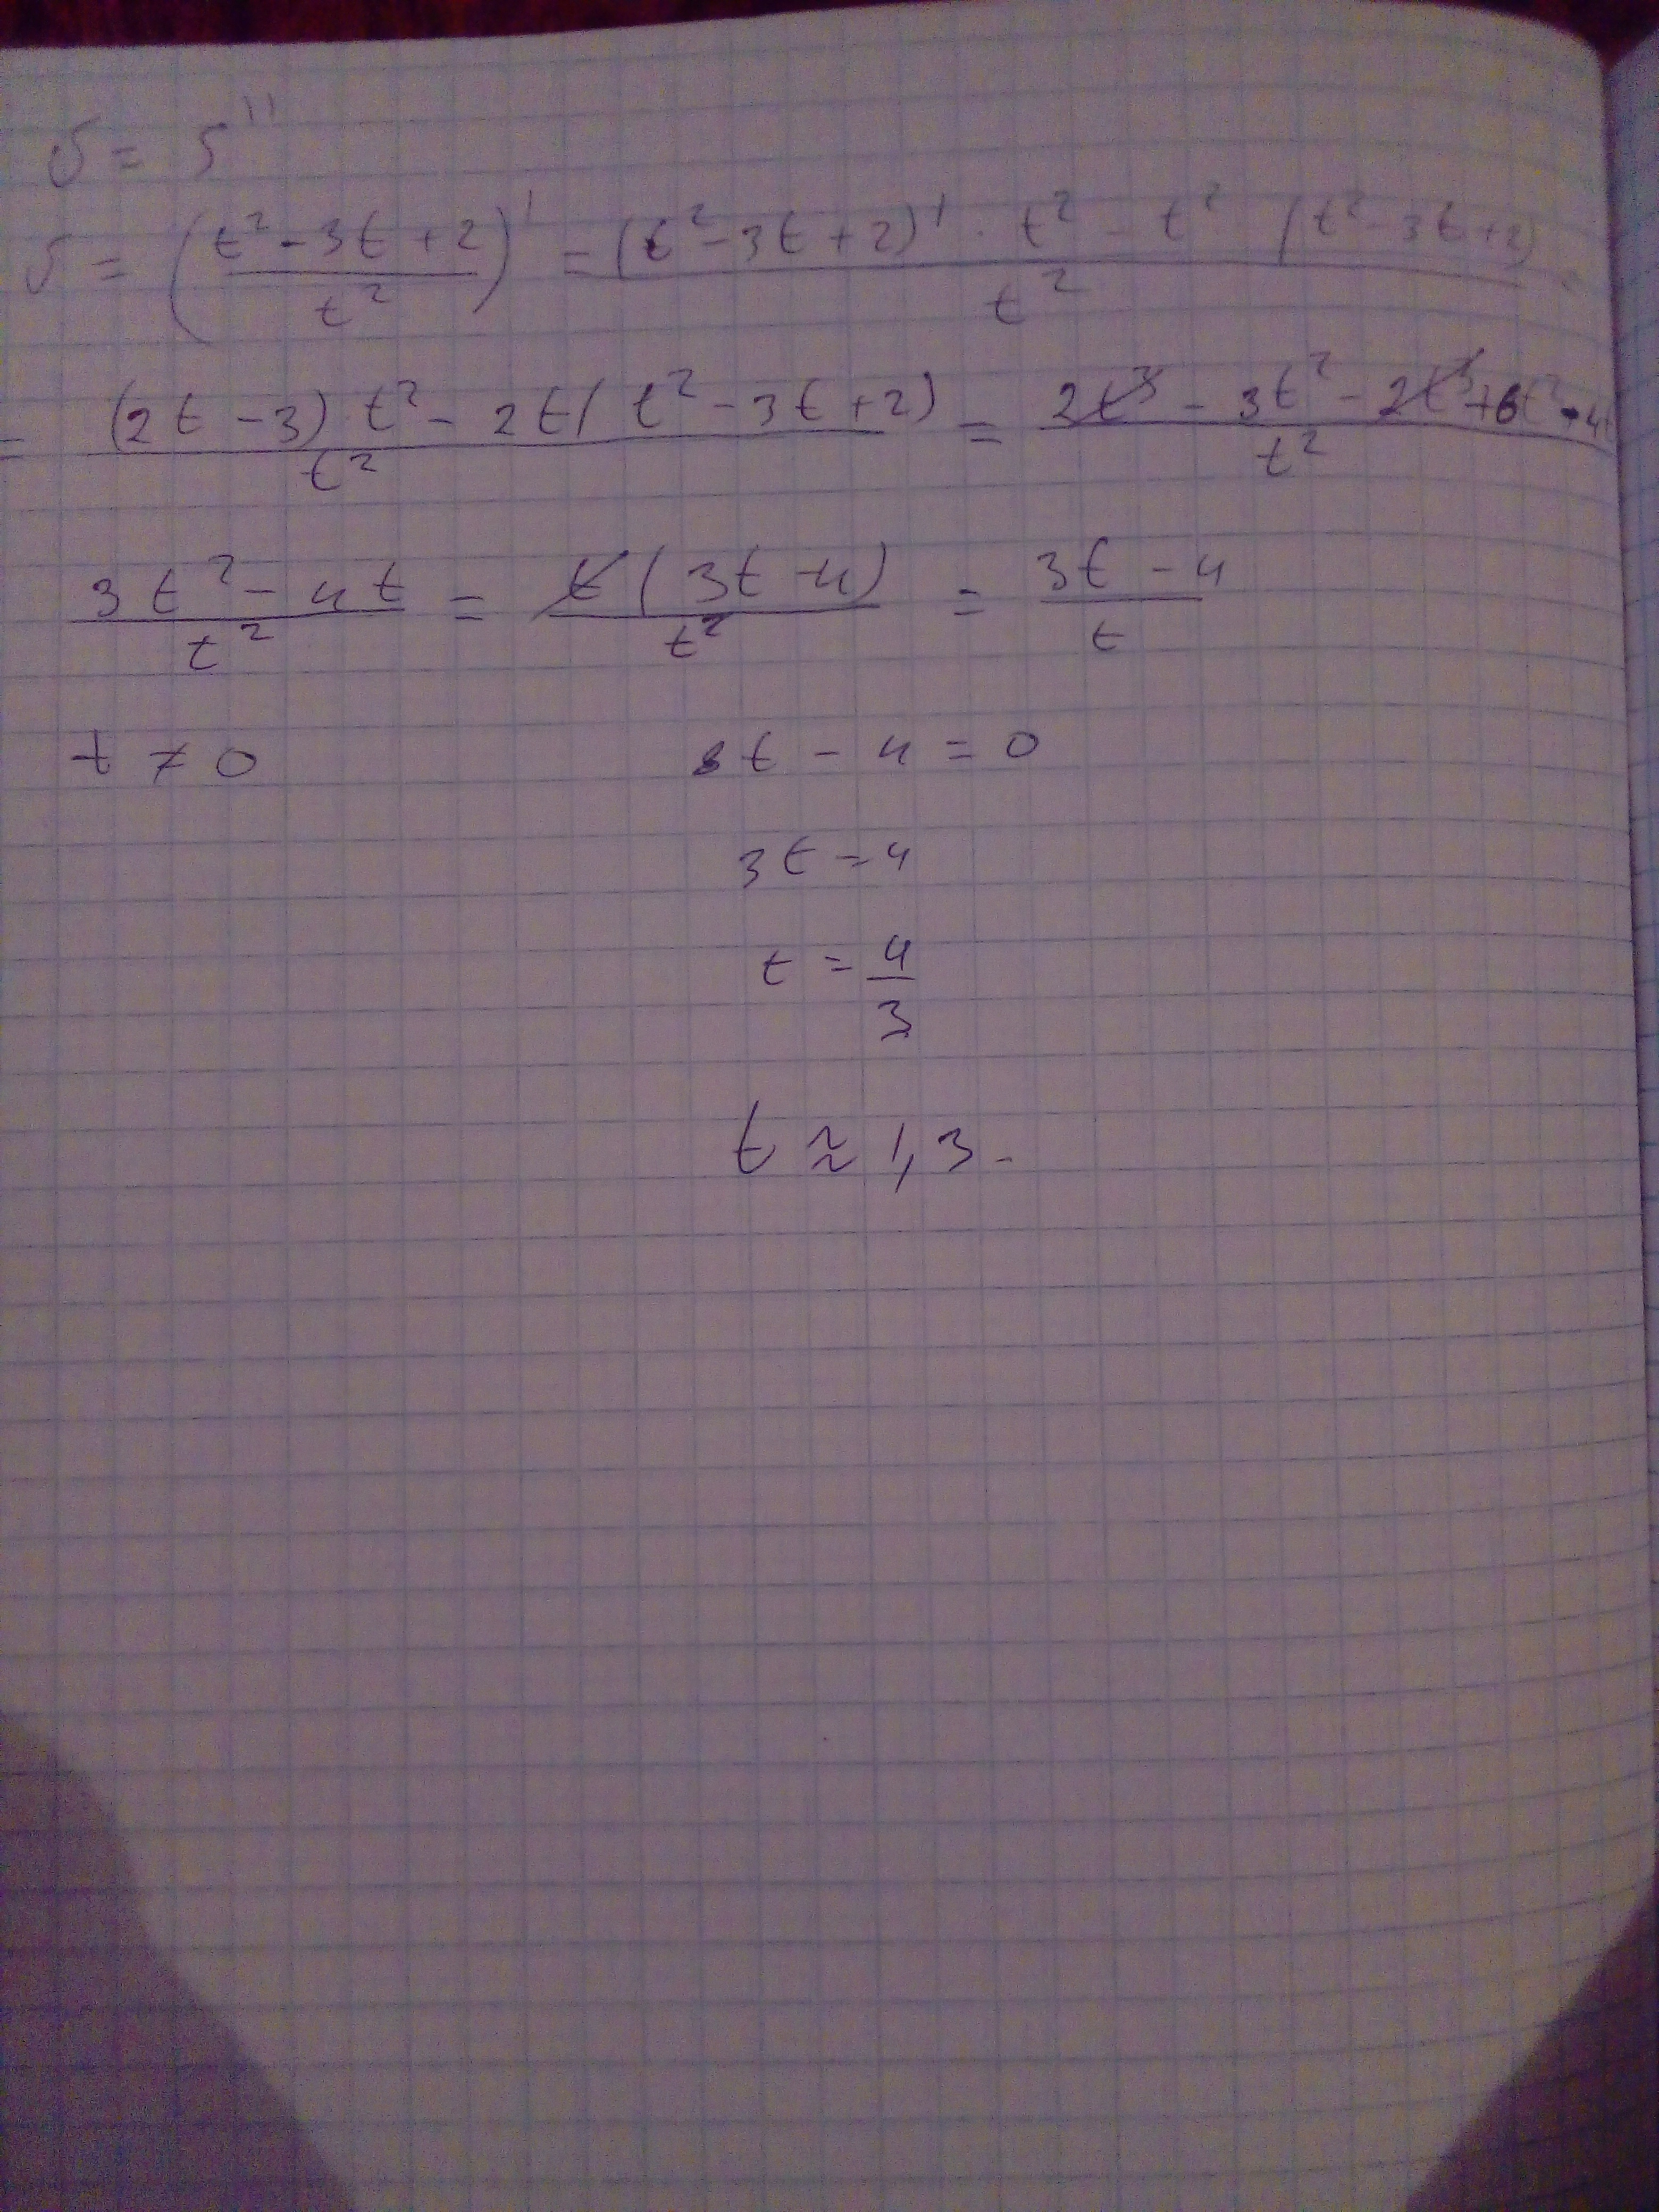 υ = S''
υ = ((t² - 3t + 2)/t²)' = ((t² - 3t + 2)' · t² - t² (t² - 3t + 2))/t² =
= ((2t - 3) · t² - 2t(t² - 3t + 2))/t² = (2t³ - 3t² - 2t³ + 6t² - 4t)/t²
(3t² - 4t)/t² = (t(3t - 4))/t² = (3t - 4)/t
t ≠ 0 3t - 4 = 0
3t = 4
t = 4/3
t ≈ 1,3.